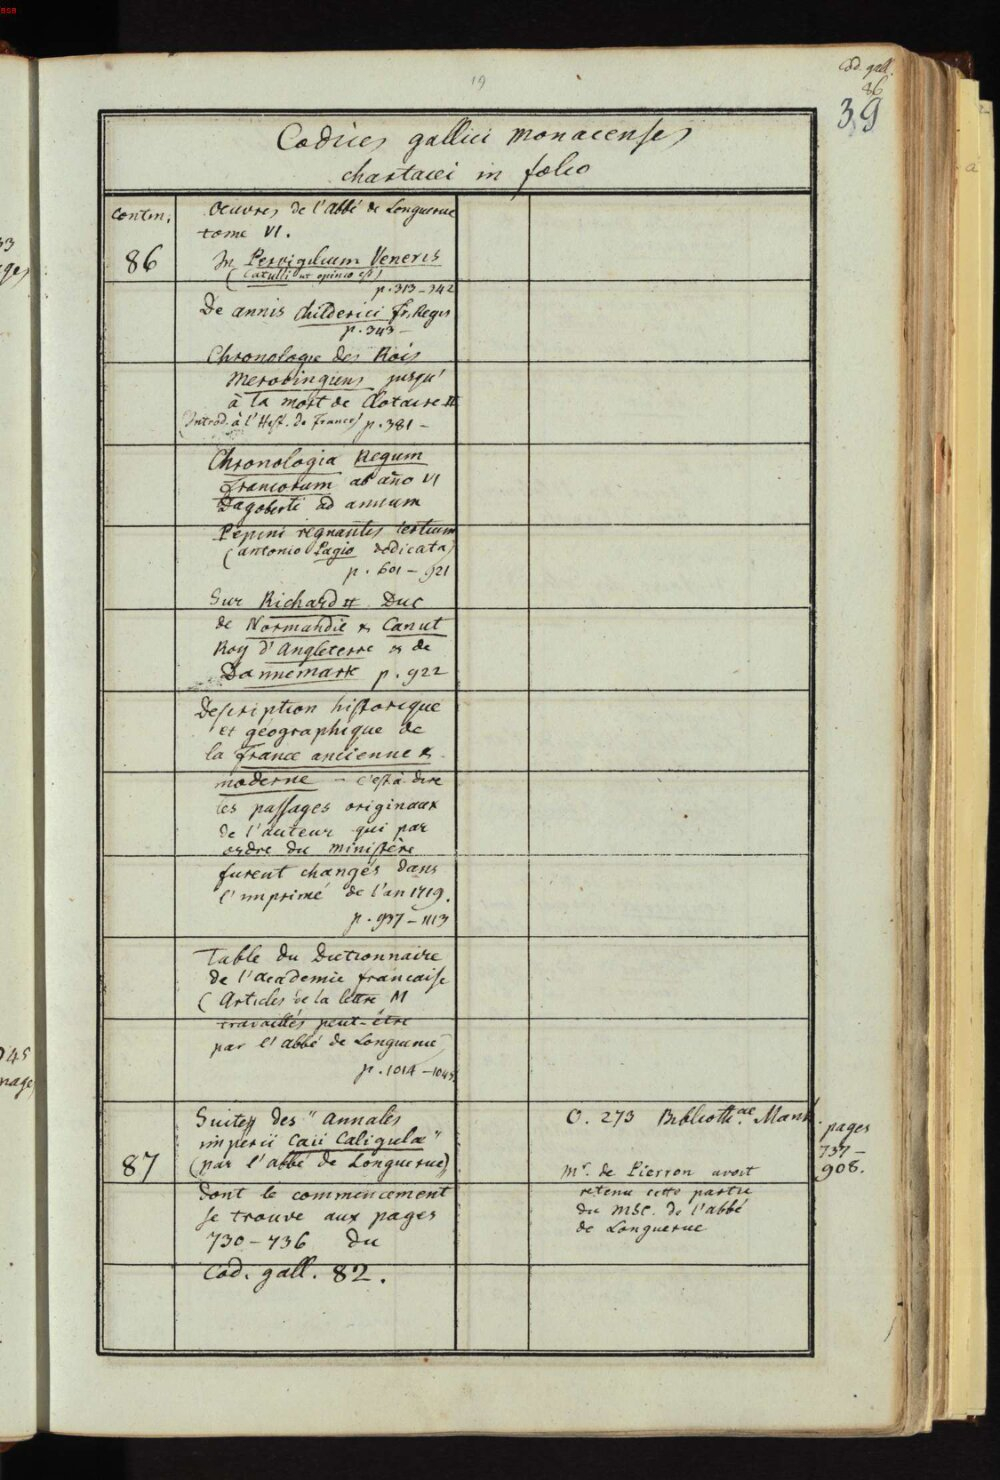 19
Cod. gall.
86
39
Codices gallici monacenses
chartacei in folio
contin.
86
Oeuvres de l'abbé de Longuerue
tome VI.
In Pervigilium Veneris
(Catulli ut opinio est)
p. 313-342
De annis Childerici fr. Regis
p. 343-
Chronologie des Rois
Merovingiens jusqu'
à la mort de Clotaire II
(Introd. à l'Hist. de France) p. 381-
Chronologia Regum
francorum ab año VI
Dagoberti ad annum
Pepini regnantis tertium
(antonio Pagio dedicata)
p. 601-921
Sur Richard II Duc
de Normandie & Canut
Roy d'Angleterre & de
Dannemark p. 922
Description historique
et géographique de
la france ancienne &
moderne - c'est à dire
les passages originaux
de l'auteur qui par
ordre du ministère
furent changés dans
l'imprimé de l'an 1719.
p. 937-1113
Table du Dictionnaire
de l'academie francaise
(Articles de la lettre M
travaillés peut-être
par l'abbé de Longuerue)
p. 1014-1045
87
Suite des "Annales
imperii Caii Caligulæ"
(par l'abbé de Longuerue)
dont le commencement
se trouve aux pages
730-736 du
Cod. gall. 82.
O. 273 Biblioth.ae Manh.
Mr. de Pierron avoit
retenu cette partie
du MSC. de l'abbé
de Longuerue
pages
737-
908.